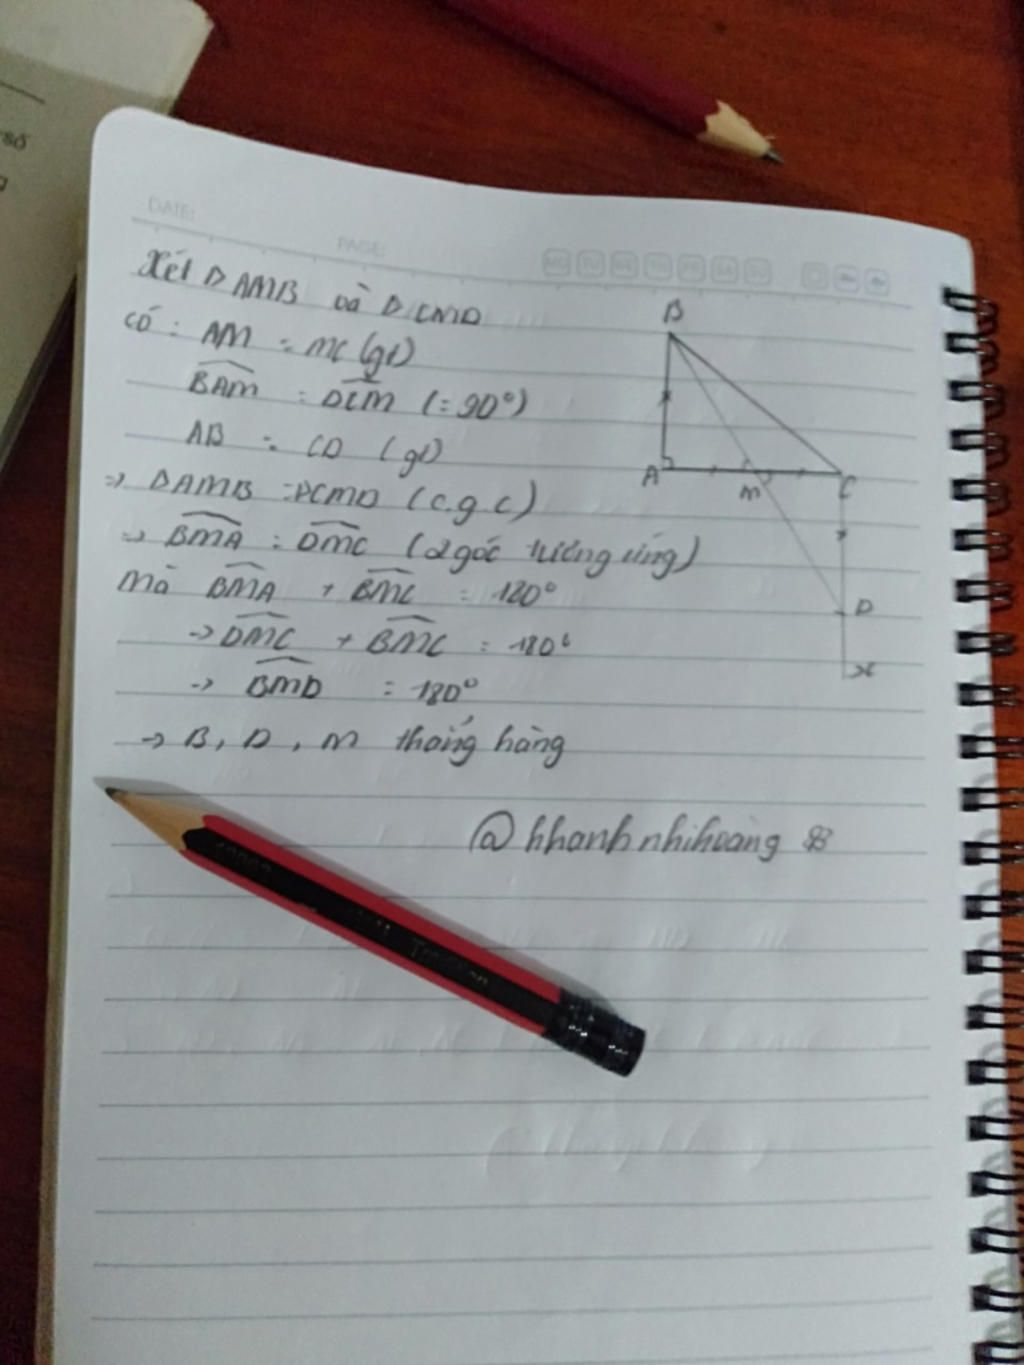 số
g
DATE:
PAGE:
MO TU WE TH FR SA SU
Xét Δ AMB và Δ CMD
có : AM = MC (gt)
BAM = DCM (= 90°)
AB = CD (gt)
=> ΔAMB = ΔCMD (c.g.c)
=> BMA = DMC (2 góc tương ứng)
mà BMA + BMC = 180°
-> DMC + BMC = 180°
-> BMD = 180°
-> B, D, M thẳng hàng
@khanhnhihoang
B
A
M
C
D
x